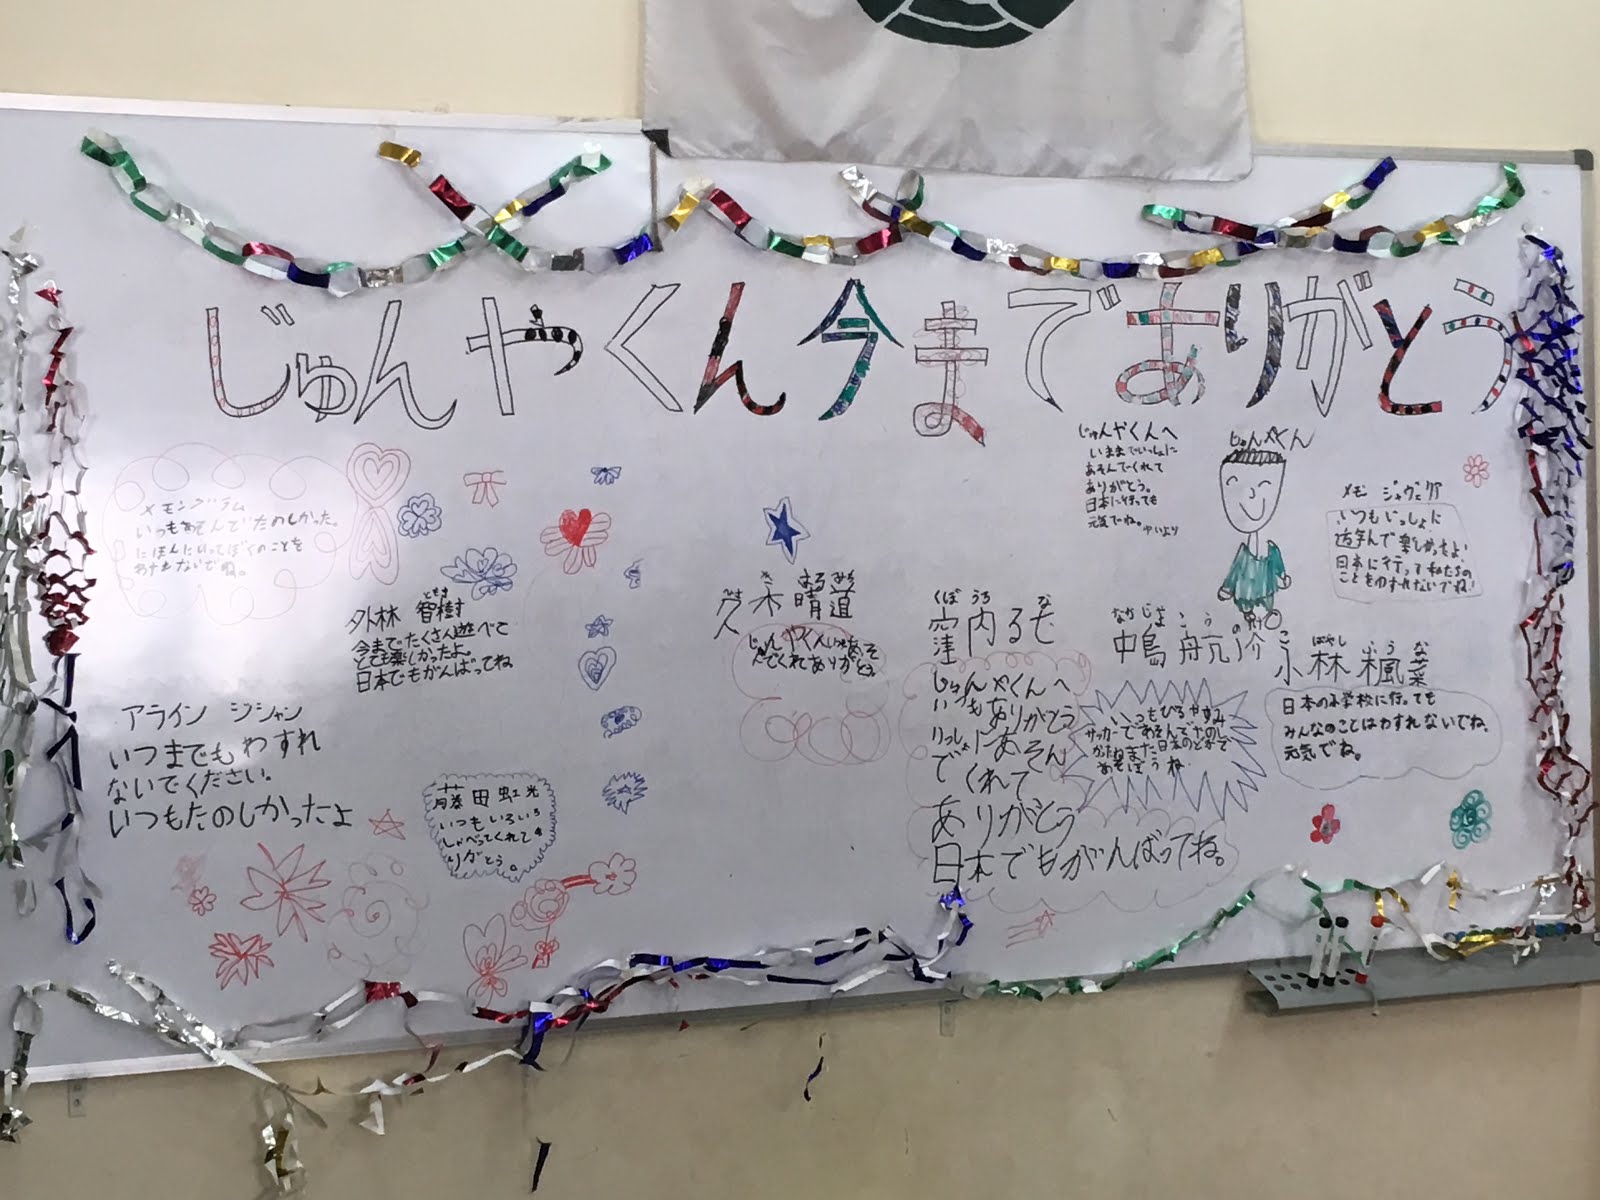 じゅんやくん今までありがとう
じゅんやくんへ
いままでいっしょに
あそんでくれて
ありがとう。
日本に行っても
元気でね。
じゅんやくん
いつもあそんでたのしかった。
にほんにいってぼくのことを
わすれないでね。
メモ ジャヴェリア
いつもいっしょに
遊んで楽しかったよ!
日本に行って私たちの
ことをわすれないでね!
ともき
外林 智樹
今までたくさん遊べて
とても楽しかったよ。
日本でもがんばってね
はるみち
茂木 晴道
じゅんやくんいつもあそ
んでくれてありがとう。
くぼうち な
窪内るな
じゅんやくんへ
いつもありがとう
いっしょにあそん
でくれて
ありがとう
日本でもがんばってね。
なかじま しゅうのすけ
中島 舟之介
いつもひるやすみ
サッカーであそんでたのし
かったねまた日本のどこかで
あそぼうね
こばやし ふうな
小林 楓菜
日本の小学校に行っても
みんなのことはわすれないでね。
元気でね。
アライン ジシャン
いつまでもわすれ
ないでください。
いつもたのしかったよ
藤田虹光
いつもいろいろ
しゃべってくれてあ
りがとう。